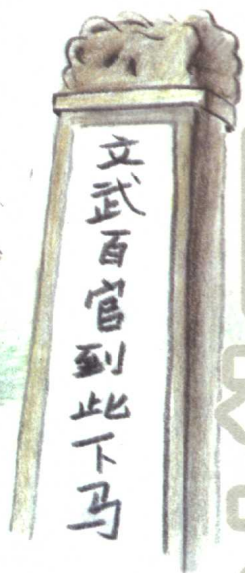 文武百官到此下马